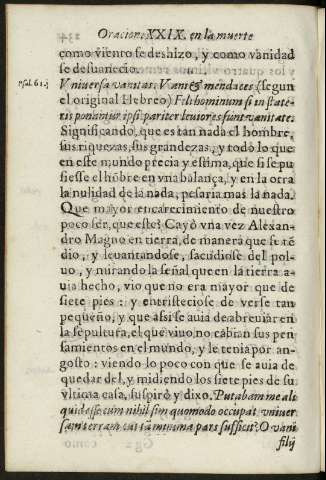 Oracion XXIX. en la muerte
como viento se deshizo, y como vanidad
se desuanecio.
Psal. 61.
Vniuersa vanitas. Vani & mendaces (segun
el original Hebreo) Filij hominum si in state-
ris ponantur ipsi pariter leuiores sunt vanitate.
Significando, que es tan nada el hombre,
sus riquezas, sus grandezas, y todo lo que
en este mundo precia y estima, que si se pu
siesse el hõbre en vna balança, y en la otra
la nulidad de la nada, pesaria mas la nada.
Que mayor encarecimiento de nuestro
poco ser, que este? Cayò vna vez Alexan-
dro Magno en tierra, de manera que se tẽ
dio, y leuantandose, sacudiose del pol-
uo, y mirando la señal que en la tierra a-
uia hecho, vio que no era mayor que de
siete pies: y entristeciose de verse tan
pequeño, y que assi se auia de abreuiar en
la sepultura, el que viuo, no cabian sus pen
samientos en el mundo, y le tenia por an-
gosto: viendo lo poco con que se auia de
quedar del, y midiendo los siete pies de su
vltima casa, suspirò y dixo. Putabam me ali
quid esse cum nihil sim quomodo occupat vniuer
sam terram cui tã minima pars sufficit? O vani
filij